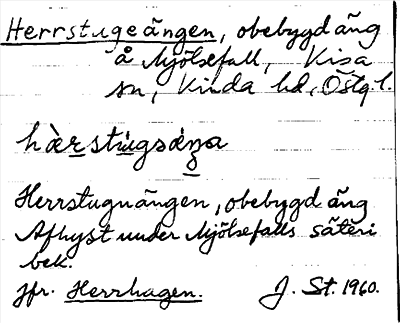 Herrstugeängen, obebygd äng
å Mjölsefall, Kisa
sn, Kinda hd, Östg. l.
hàrstùgsáŋa
Herrstugnängen, obebygd äng
Afhyst under Mjölsefalls säteri
bek.
jfr. Herrhagen. J. St. 1960.